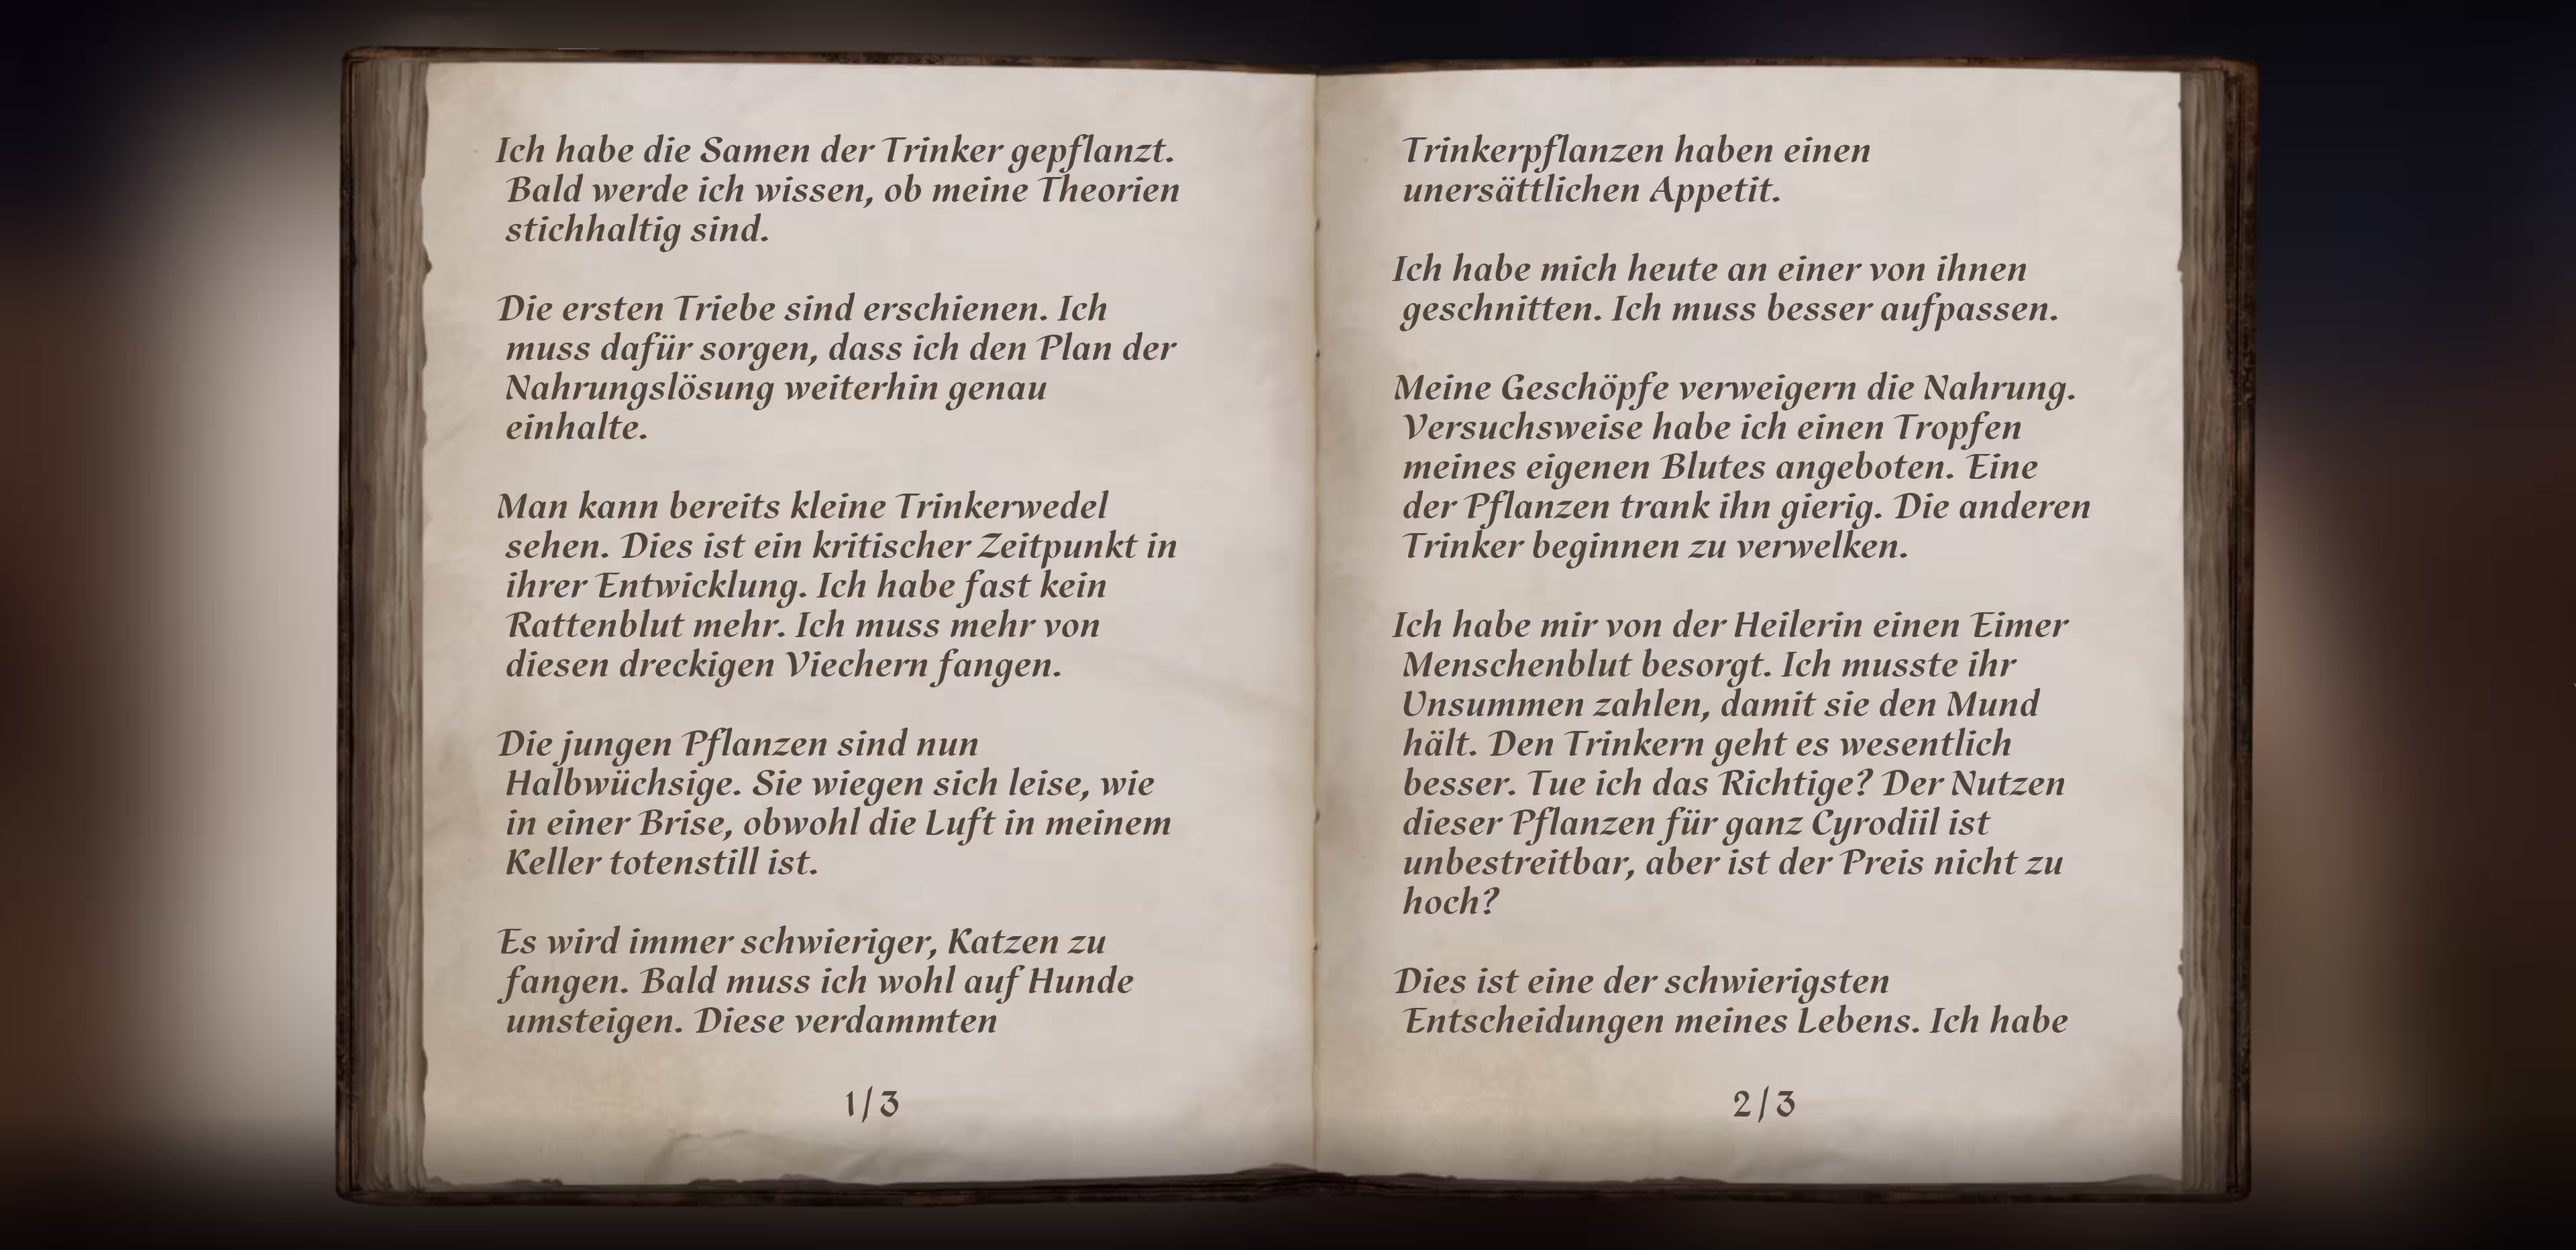 Ich habe die Samen der Trinker gepflanzt.
Bald werde ich wissen, ob meine Theorien
stichhaltig sind.
Die ersten Triebe sind erschienen. Ich
muss dafür sorgen, dass ich den Plan der
Nahrungslösung weiterhin genau
einhalte.
Man kann bereits kleine Trinkerwedel
sehen. Dies ist ein kritischer Zeitpunkt in
ihrer Entwicklung. Ich habe fast kein
Rattenblut mehr. Ich muss mehr von
diesen dreckigen Viechern fangen.
Die jungen Pflanzen sind nun
Halbwüchsige. Sie wiegen sich leise, wie
in einer Brise, obwohl die Luft in meinem
Keller totenstill ist.
Es wird immer schwieriger, Katzen zu
fangen. Bald muss ich wohl auf Hunde
umsteigen. Diese verdammten
1/3
Trinkerpflanzen haben einen
unersättlichen Appetit.
Ich habe mich heute an einer von ihnen
geschnitten. Ich muss besser aufpassen.
Meine Geschöpfe verweigern die Nahrung.
Versuchsweise habe ich einen Tropfen
meines eigenen Blutes angeboten. Eine
der Pflanzen trank ihn gierig. Die anderen
Trinker beginnen zu verwelken.
Ich habe mir von der Heilerin einen Eimer
Menschenblut besorgt. Ich musste ihr
Unsummen zahlen, damit sie den Mund
hält. Den Trinkern geht es wesentlich
besser. Tue ich das Richtige? Der Nutzen
dieser Pflanzen für ganz Cyrodiil ist
unbestreitbar, aber ist der Preis nicht zu
hoch?
Dies ist eine der schwierigsten
Entscheidungen meines Lebens. Ich habe
2/3